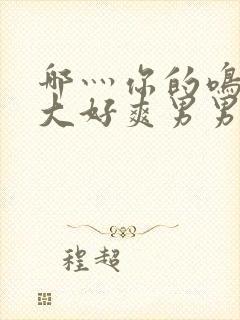 那灬你的鳴
大好爽男男
程超